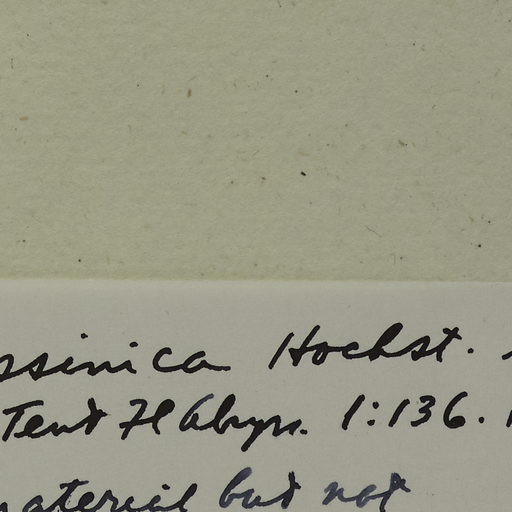 ssinica Hochst.
Tent Fl Abyss. 1:136.
material but not